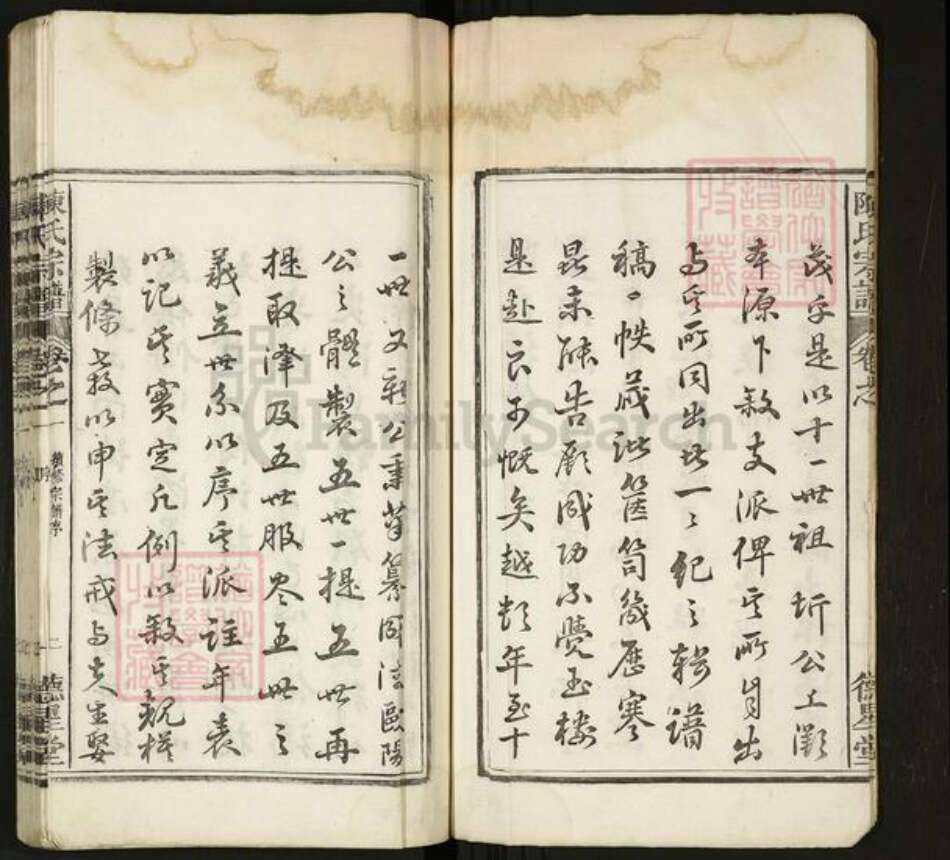 陳氏宗譜
卷之一
德星堂
茂乎是以十一世祖圻公上溯
本源下敘支派俾其所自出
与其所同出者一一紀之輯譜
稿一帙藏諸篋笥幾歷寒
暑未能告厥成功不覺玉樓
是赴良可慨矣越數年至十
一世又新公秉筆纂修法歐陽
公之體製五世一提五世再
提取澤及五世服尽五世之
義立世系以序其派註年表
以記其實定凡例以敘其規模
製條教以申其法戒与夫生娶
陳氏宗譜
卷之一
續修宗譜序
二
德星堂
FamilySearch